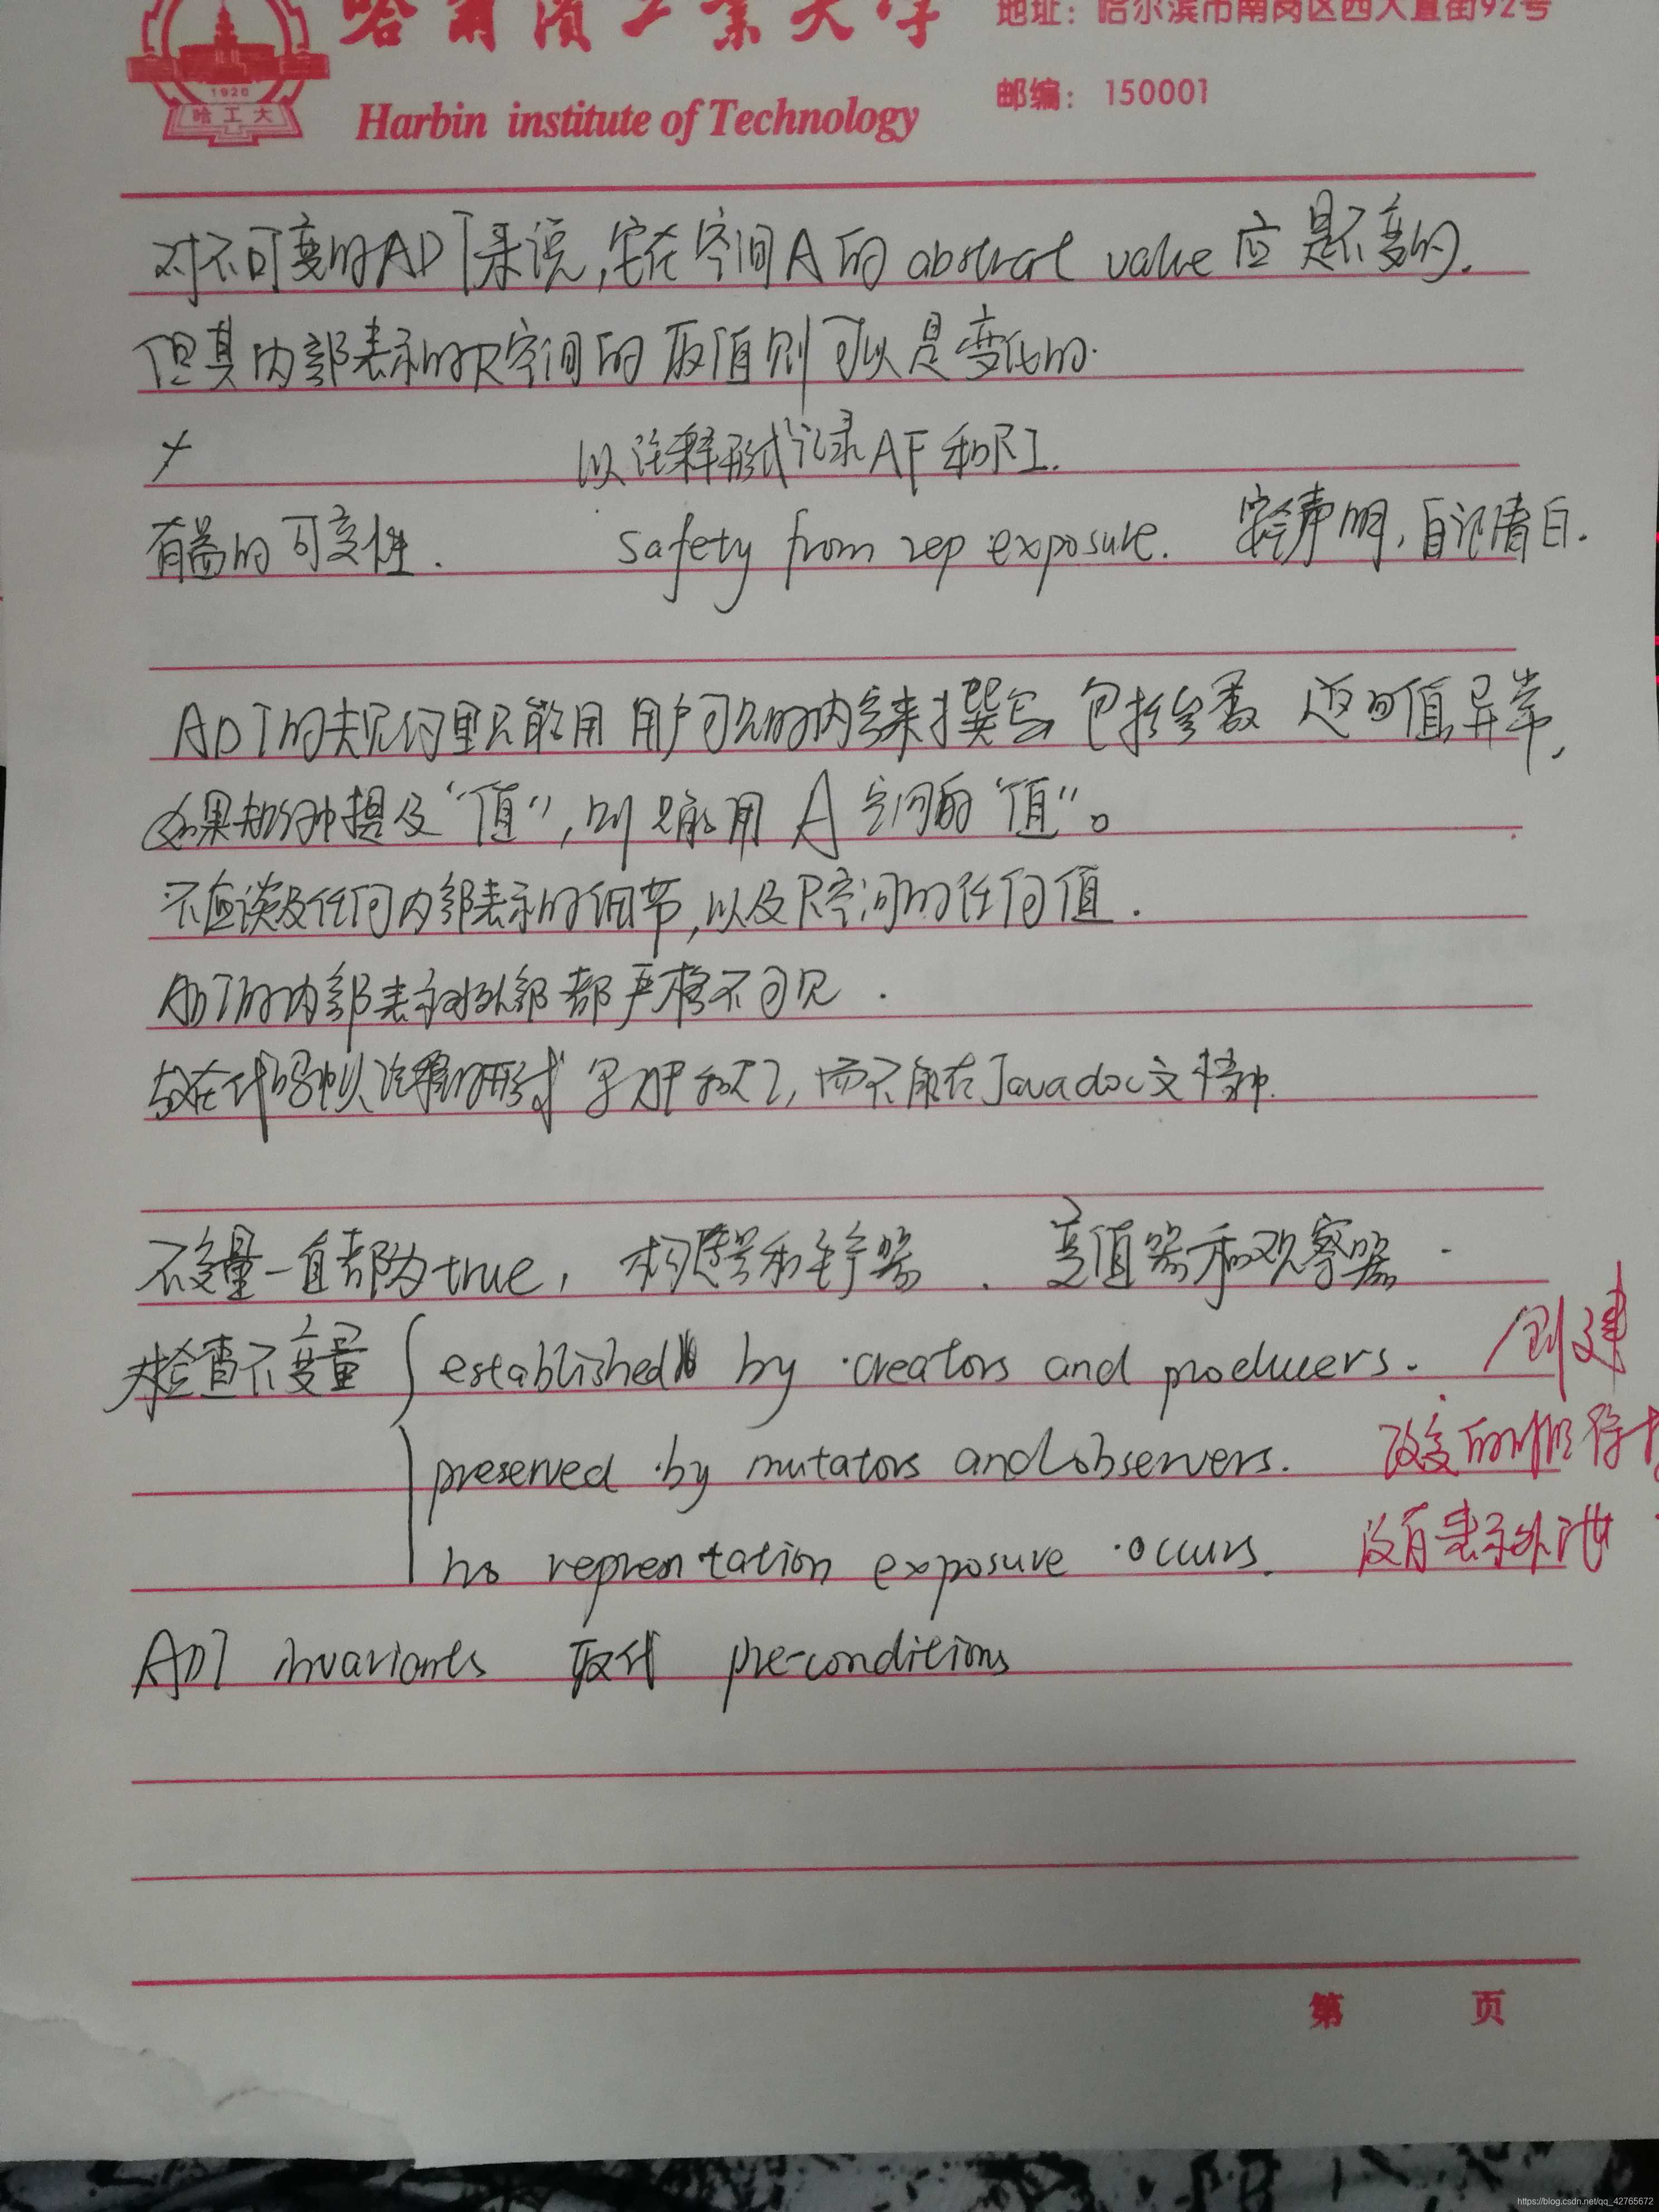 哈尔滨工业大学
地址：哈尔滨市南岗区西大直街92号
1920
哈工大
Harbin institute of Technology
邮编：150001
对不可变的ADT来说，它在空间A的 abstract value 应是不变的.
但其内部表示的R空间的取值则可以是变化的.
以注释形式记录AF和RI.
有益的可变性. safety from rep exposure. 安全声明，自证清白.
ADT的规约里只能用用户可见的内容来撰写 包括参数 返回值 异常，
如果规约中提及“值”，则只能用A空间的“值”。
不应谈及任何内部表示的细节，以及R空间的任何值.
ADT的内部表示对外部都严格不可见.
故在代码中以注释的形式写AF和RI，而不能在Javadoc文档中.
不变量一直都为true， 构造器和生产器 . 变值器和观察器.
检查不变量 { established by creators and producers. 创建
preserved by mutators and observers. 改变的时候保持
no reprentation exposure occurs. 没有表示外泄
ADT invariants 取代 pre-conditions
第 页
https://blog.csdn.net/qq_42765672